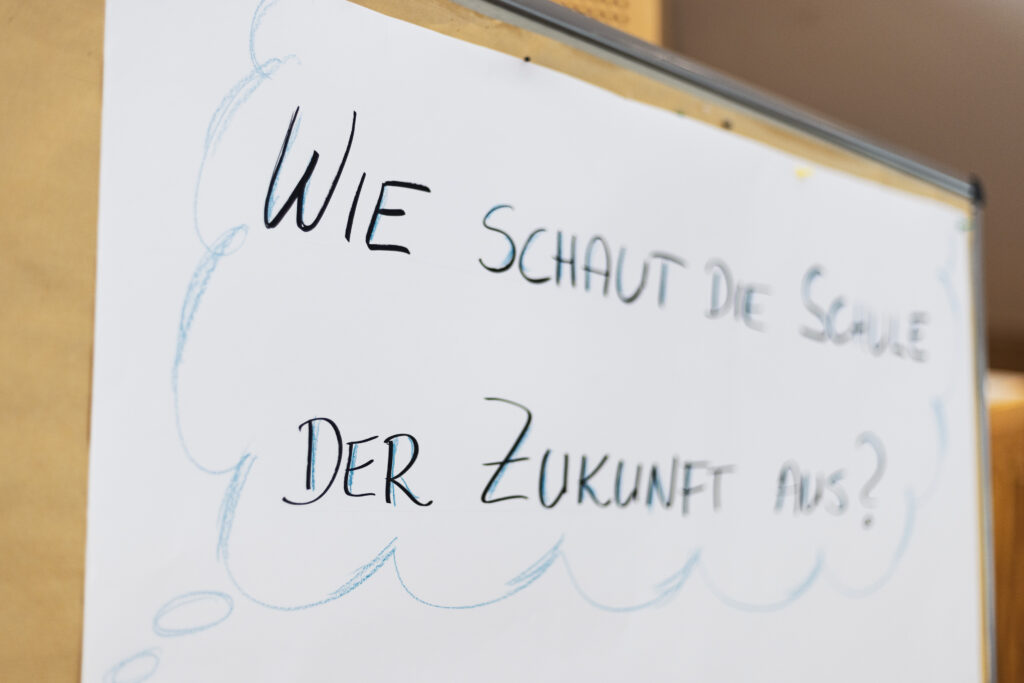 WIE SCHAUT DIE SCHULE
DER ZUKUNFT AUS?